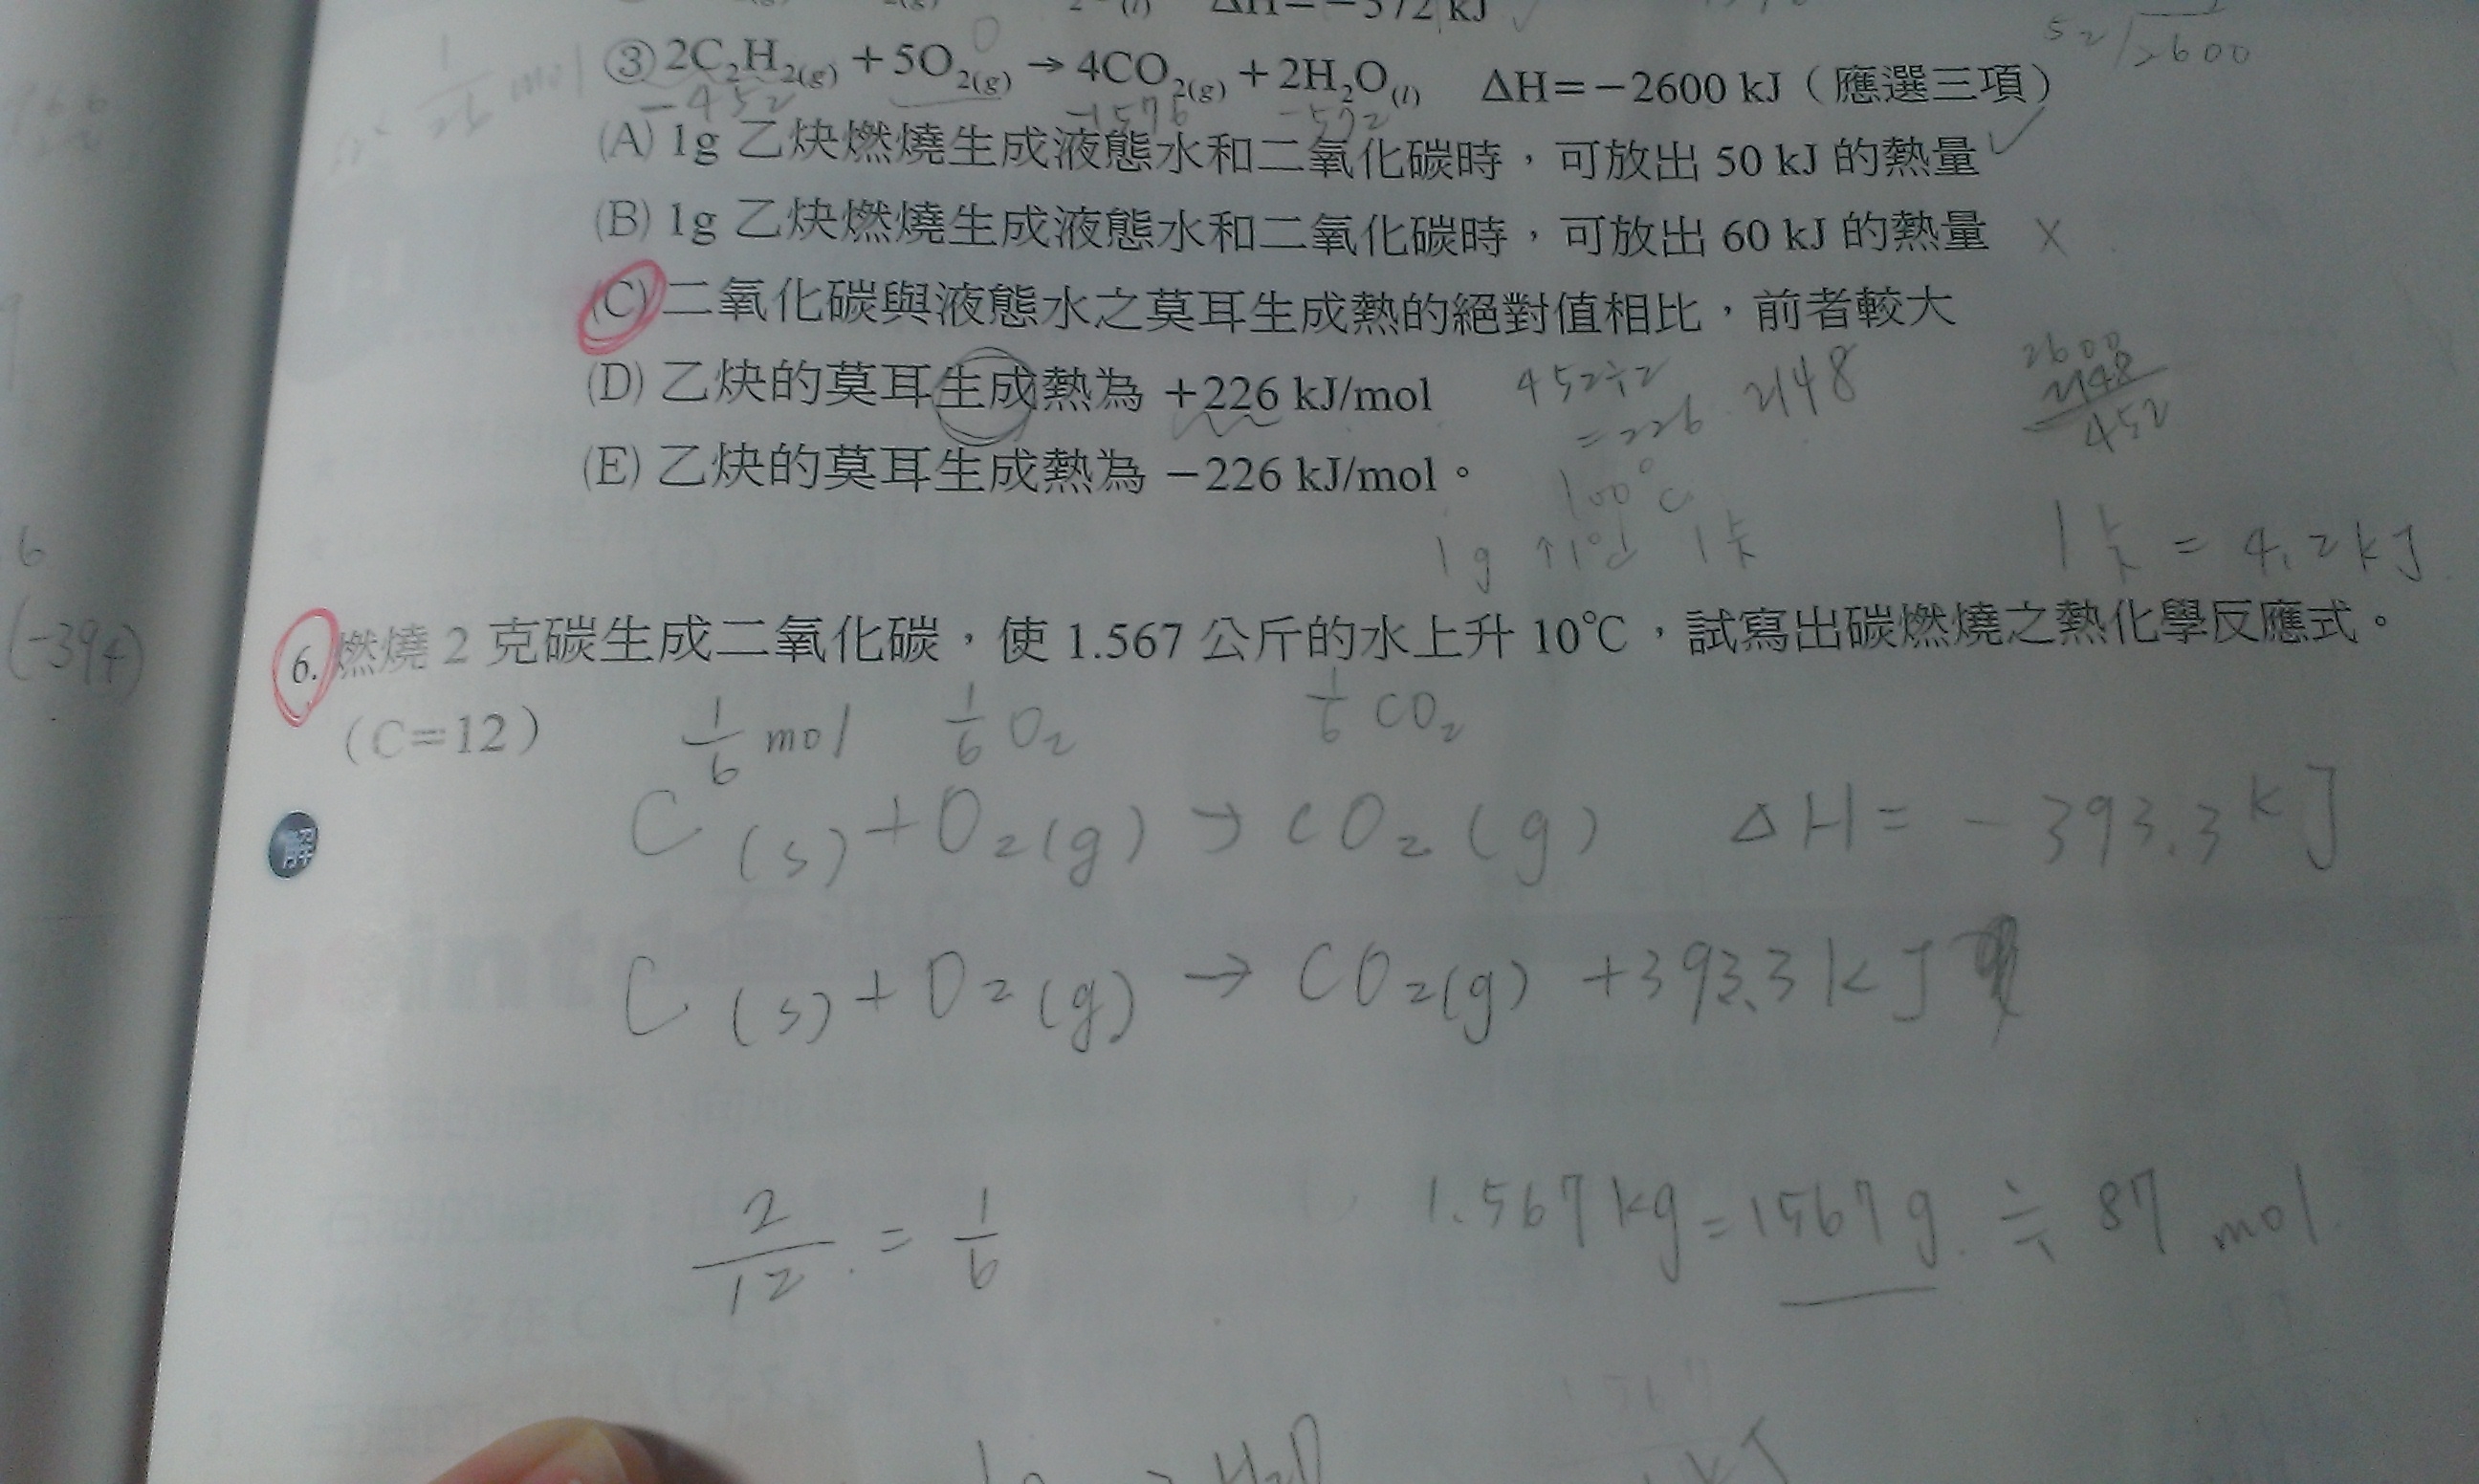 ΔH=−572 kJ
52/2600
③ 2C₂H₂(g)+5O₂(g)→4CO₂(g)+2H₂O(l) ΔH=−2600 kJ（應選三項）
1/26 mol
−452 −1576 −572
(A) 1g 乙炔燃燒生成液態水和二氧化碳時，可放出 50 kJ 的熱量
(B) 1g 乙炔燃燒生成液態水和二氧化碳時，可放出 60 kJ 的熱量 ×
(C) 二氧化碳與液態水之莫耳生成熱的絕對值相比，前者較大
(D) 乙炔的莫耳生成熱為 +226 kJ/mol
452÷2
=226
2148
2600
2148
452
(E) 乙炔的莫耳生成熱為 −226 kJ/mol。
100℃
1g ↑1℃ 1卡
1卡 = 4.2kJ
6
(-394)
6. 燃燒 2 克碳生成二氧化碳，使 1.567 公斤的水上升 10℃，試寫出碳燃燒之熱化學反應式。
（C=12）
1/6 mol 1/6 O₂ 1/6 CO₂
解
C(s)+O₂(g)→CO₂(g) ΔH=−393.3kJ
C(s)+O₂(g)→CO₂(g)+393.3kJ
2/12=1/6
1.567kg=1567g≒87 mol
H₂O
kJ